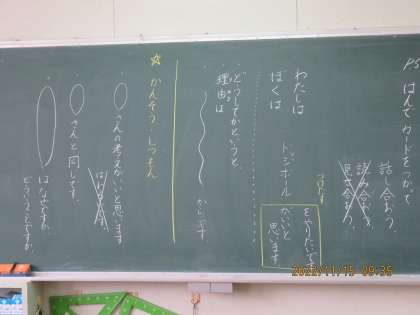 P5 はんてカードをつかって
話し合おう。
読み合おう。
見せ合おう。
わたしは
ぼくは
ドッジボール
をやりたいです
がいいと
思います。
どうしてかというと、
理由は
からです
☆かんそう・しつもん
さんの考えがいいと思います
さんと同じです。
はなぜですか
どういうことですか。
2022/11/15 09:35